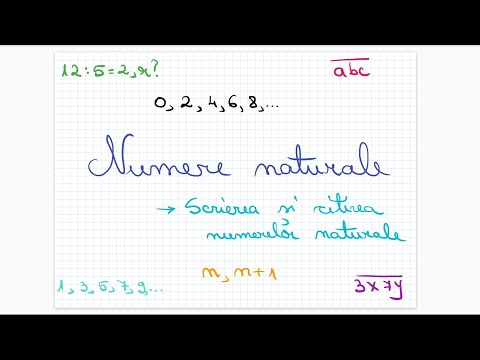 12:5=2,r?
abc
0, 2, 4, 6, 8, ...
Numere naturale
→ Scrierea și citirea
numerelor naturale
n, n+1
1, 3, 5, 7, 9, ...
3x7y